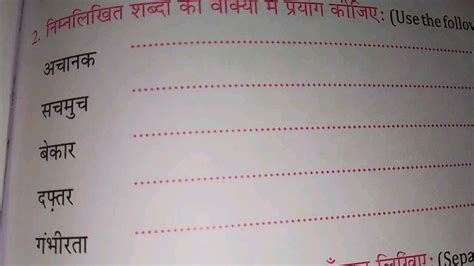 2. निम्नलिखित शब्दों का वाक्यों में प्रयोग कीजिए: (Use the follow
अचानक
सचमुच
बेकार
दफ़्तर
गंभीरता
लिखिए: (Sepa